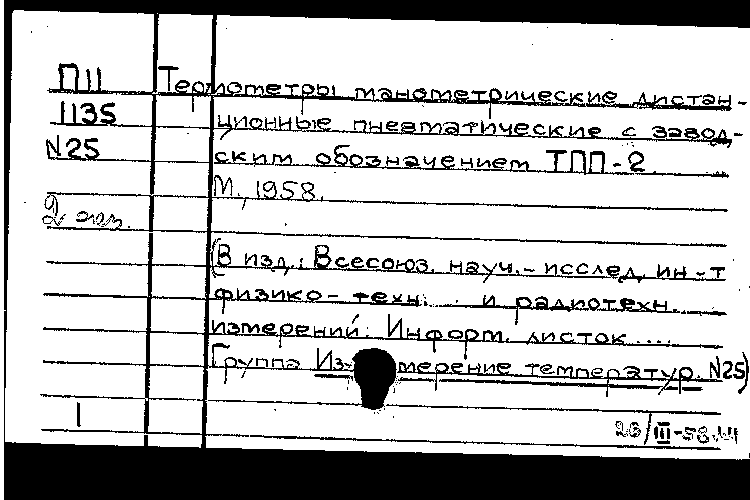 П11 Термометры манометрические дистан-
1135 ционные пневматические с завод-
N25 ским обозначением ТПП-2.
М., 1958.
2 экз.
(В изд.: Всесоюз. науч.-исслед. ин-т
физико-техн. и радиотехн.
измерений. Информ. листок....
Группа Из-мерение температур. N25)
1
26/III-58